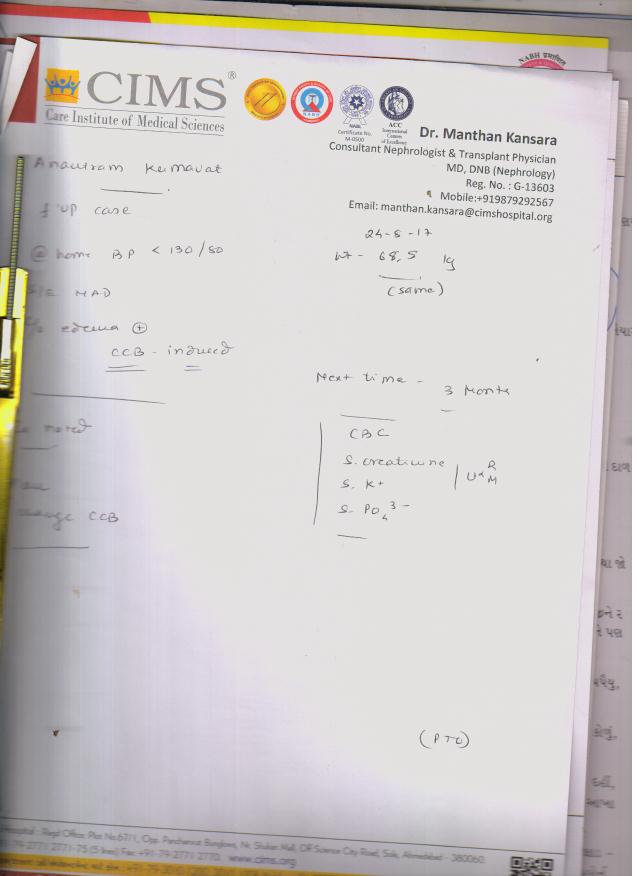 CIMS®
Care Institute of Medical Sciences
NABL
Certificate No.
M-0500
ACC
International
Centers
of Excellence
Dr. Manthan Kansara
Consultant Nephrologist & Transplant Physician
MD, DNB (Nephrology)
Reg. No. : G-13603
Mobile:+919879292567
Email: manthan.kansara@cimshospital.org
Kumavat
f'up case
@ home BP < 130/80
24-8-17
wt - 68.5 kg
(same)
NAD
edema ⊕
CCB - induced
Next time - 3 Months
noted
CBC
S. creatinine
S. K+
S. PO₄³⁻
R
M
change CCB
(PTO)
Hospital : Regd Office: Plot No.67/1, Opp. Panchamrut Bunglows, Nr. Shukan Mall, Off Science City Road, Sola, Ahmedabad - 380060.
79-2771 2771-75 (5 lines) Fax: +91-79-2771 2770. www.cims.org